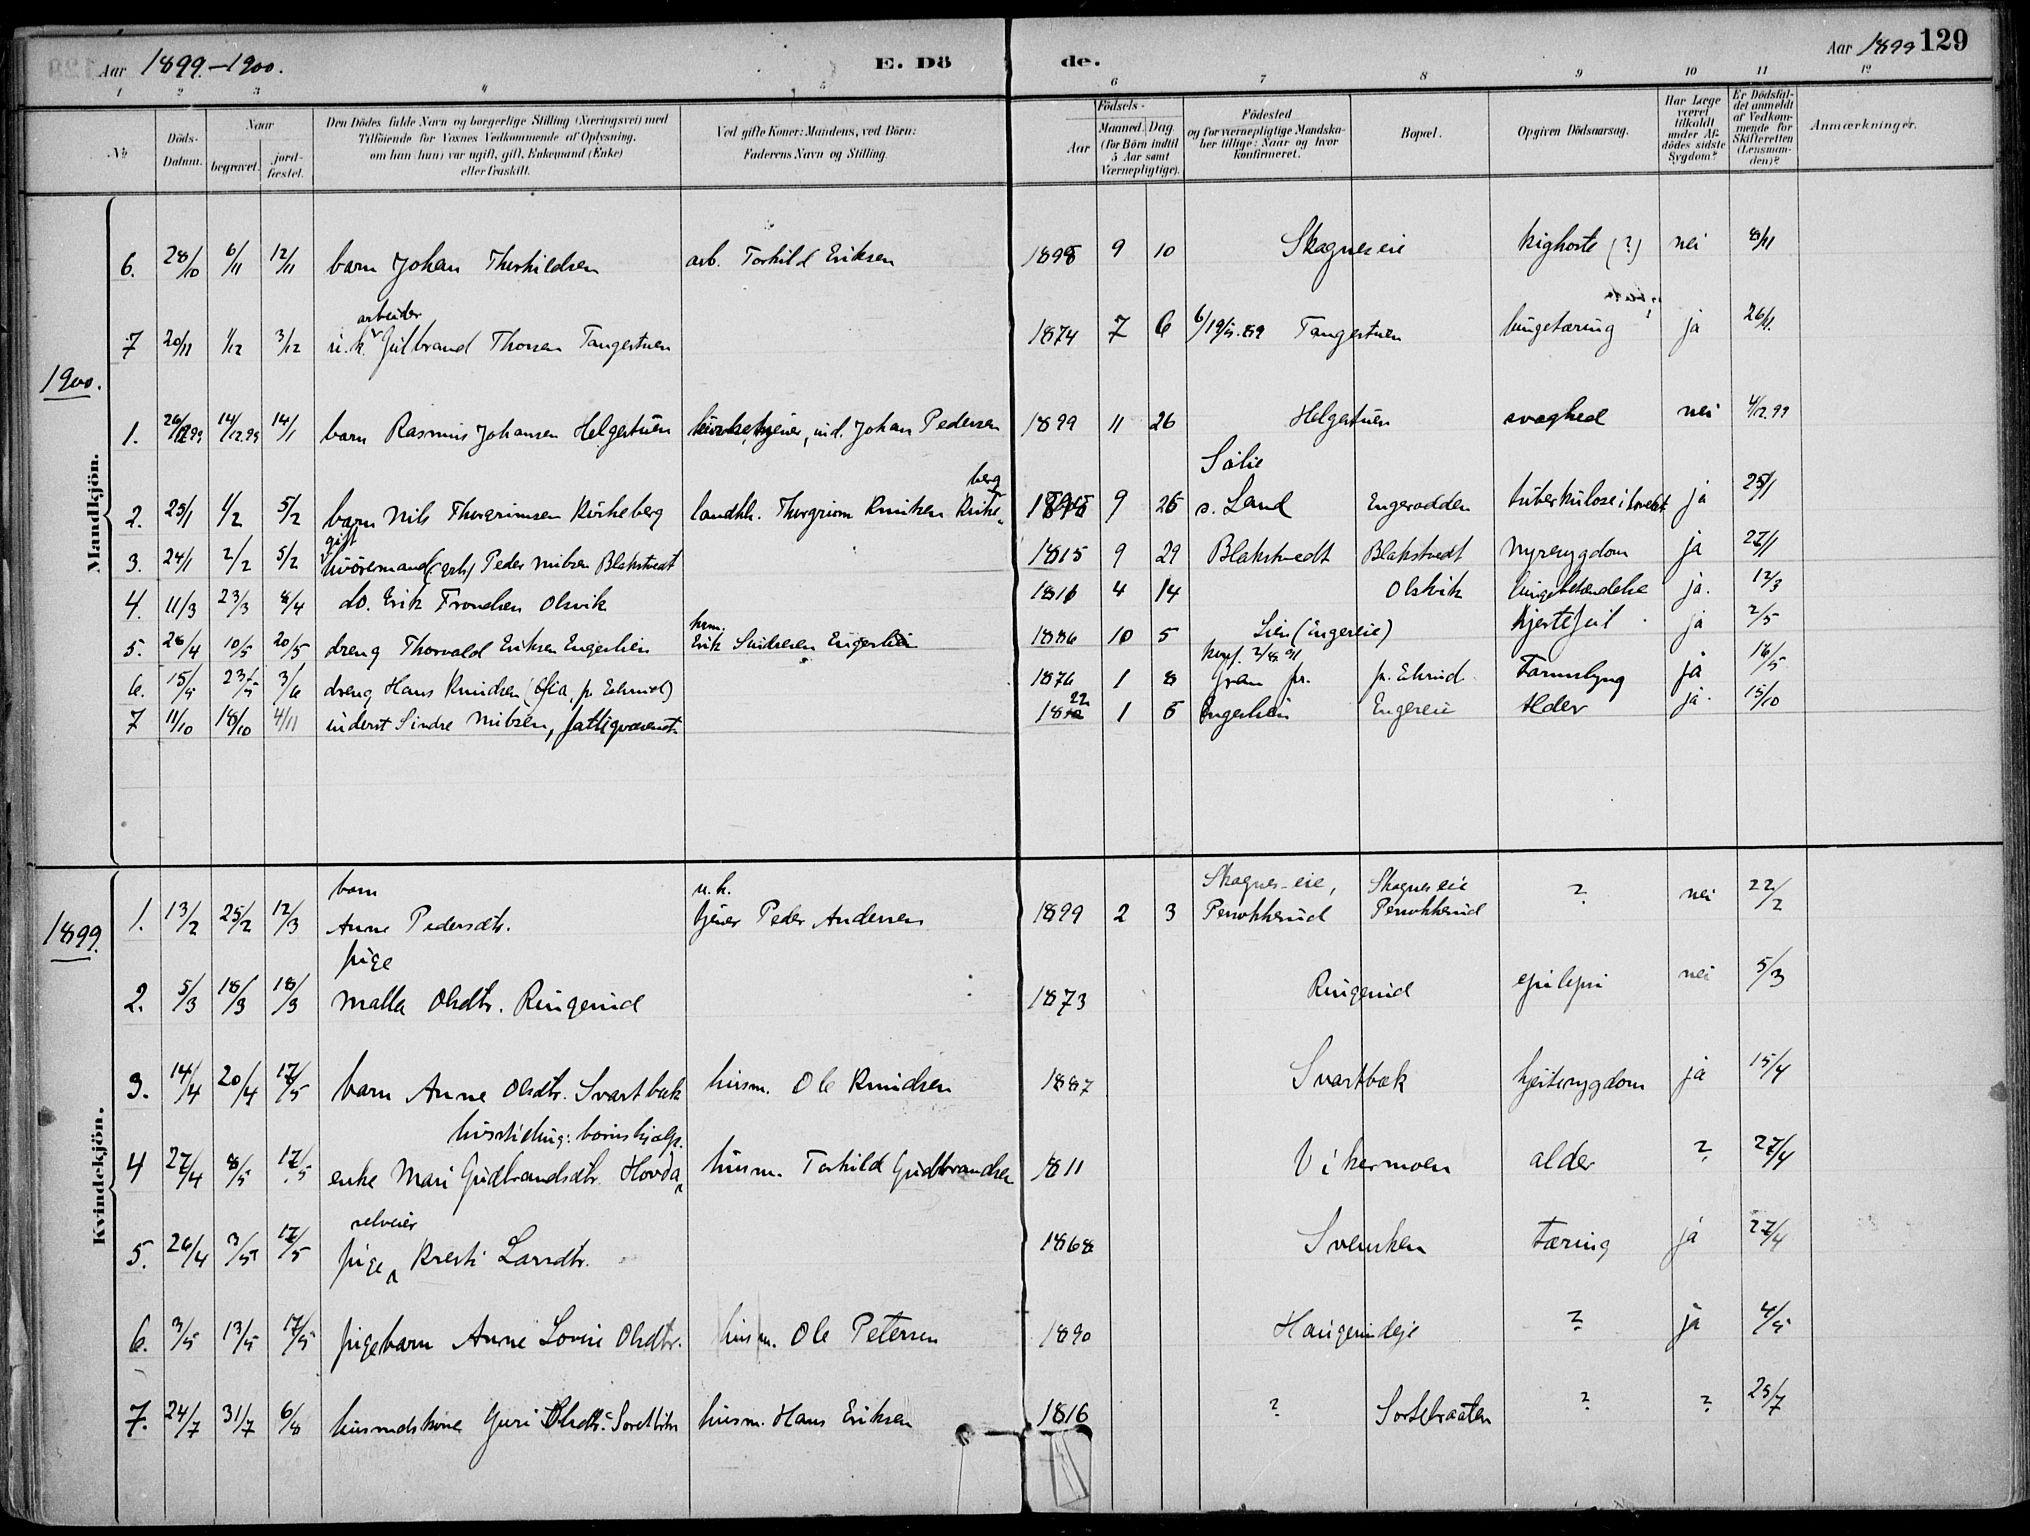 Aar 1899.-1900.
E. Dö
de.
Aar 1899 129
1 2 3 4 5 6 7 8 9 10 11 12
No
Döds-Datum.
Naar
begravet.
jord-fæstet.
Den Dödes fulde Navn og borgerlige Stilling (Næringsvei) med
Tilföiende for Voxnes Vedkommende af Oplysning,
om han (hun) var ugift, gift, Enkemand (Enke)
eller fraskilt.
Ved gifte Koner: Mandens, ved Börn:
Faderens Navn og Stilling.
Födsels-
Aar
Maaned. Dag
(for Börn indtil
5 Aar samt
Værnepligtige).
Födested
og for værnepligtige Mandska-
ber tillige: Naar og hvor
konfirmeret.
Bopæl.
Opgiven Dödsaarsag.
Har Læge
været
tilkaldt
under Af-
dödes sidste
Sygdom?
Er Dödsfal-
det anmeldt
af Vedkom-
mende for
Skifteretten
(Lensman-
den)?
Anmærkninger.
Mandkjön.
6. 28/10 6/11 12/11 barn Johan Thorkildsen arb. Torkild Eriksen 1898 9 10 Skagnes eie kighoste (?) nei 8/11
arbeider
7 20/11 1/12 3/12 u.k. Gulbrand Thorsen Tangestuen 1874 7 6 Tangestuen lungetæring ja 26/11
1900.
1. 26/11 99 14/12.99 14/1 barn Rasmus Johansen Helgestuen kirketjener, ind. Johan Pedersen 1899 11 26 Helgestuen svaghed nei 4/12 99
Sölie
berg
2. 25/1 1/2 5/2 barn Nils Thorgrimsen Kirkeberg landhl. Thorgrim Knutsen Kirke- 9 26 s. Land Engerodden tuberkulose i hovedet ja 25/1
gift
3. 24/1 2/2 5/2 Peder Nubsen Blakstvedt 1815 9 29 Blakstvedt Blakstvedt Nyresygdom ja 27/1
4. 11/3 23/3 8/4 do. Erik Trondsen Olsvik 1816 4 14 Olsvik lungebetændelse ja. 12/3
husm.
5. 28/4 10/5 20/5 dreng Thorvald Eriksen Engerlien Erik Sindresen Engerlien 1886 10 5 Lien (Engereie) Hjertefeil ja 2/5
6. 15/5 23/5 3/6 dreng Hans Knudsen 1876 1 8 Gran pr. Tarmslyng ja 16/5
7 11/10 18/10 4/11 inderst Sindre Nubsen, fattigvæsenet 1822 1 5 Engerlien Engereie Alder ja 15/10
Kvindekjön.
1899.
barn u.k. Skagnes-eie, Skagnes eie
1. 13/2 25/2 12/3 Anne Pedersdtr. tjener Peder Andersen 1899 2 3 Persokkerud Persokkerud ? nei 22/2
pige
2. 5/3 18/3 18/3 Malla Olsdtr. Ringerud 1873 Ringerud epilepsi nei 5/3
3. 14/4 20/4 17/5 barn Anne Olsdtr. Svartbæk husm. Ole Knudsen 1887 Svartbæk hjertesygdom ja 15/4
4 27/4 8/5 17/5 enke Mari Gudbrandsdtr. Hovda husm. Torkild Gudbrandsen 1811 Vikermoen alder ? 27/4
selveier
5. 26/4 3/5 17/5 pige Kresti Larsdtr. 1868 Svensken Tæring ja 27/4
6. 3/5 13/5 17/5 pigebarn Anne Lovise Olsdtr. husm. Ole Petersen 1890 Haugerudeje ? ja 4/5
7. 24/7 31/7 6/8 husmdskone Guri Olsdtr. husm. Hans Eriksen 1816 ? Sortebraaten ? ? 25/7